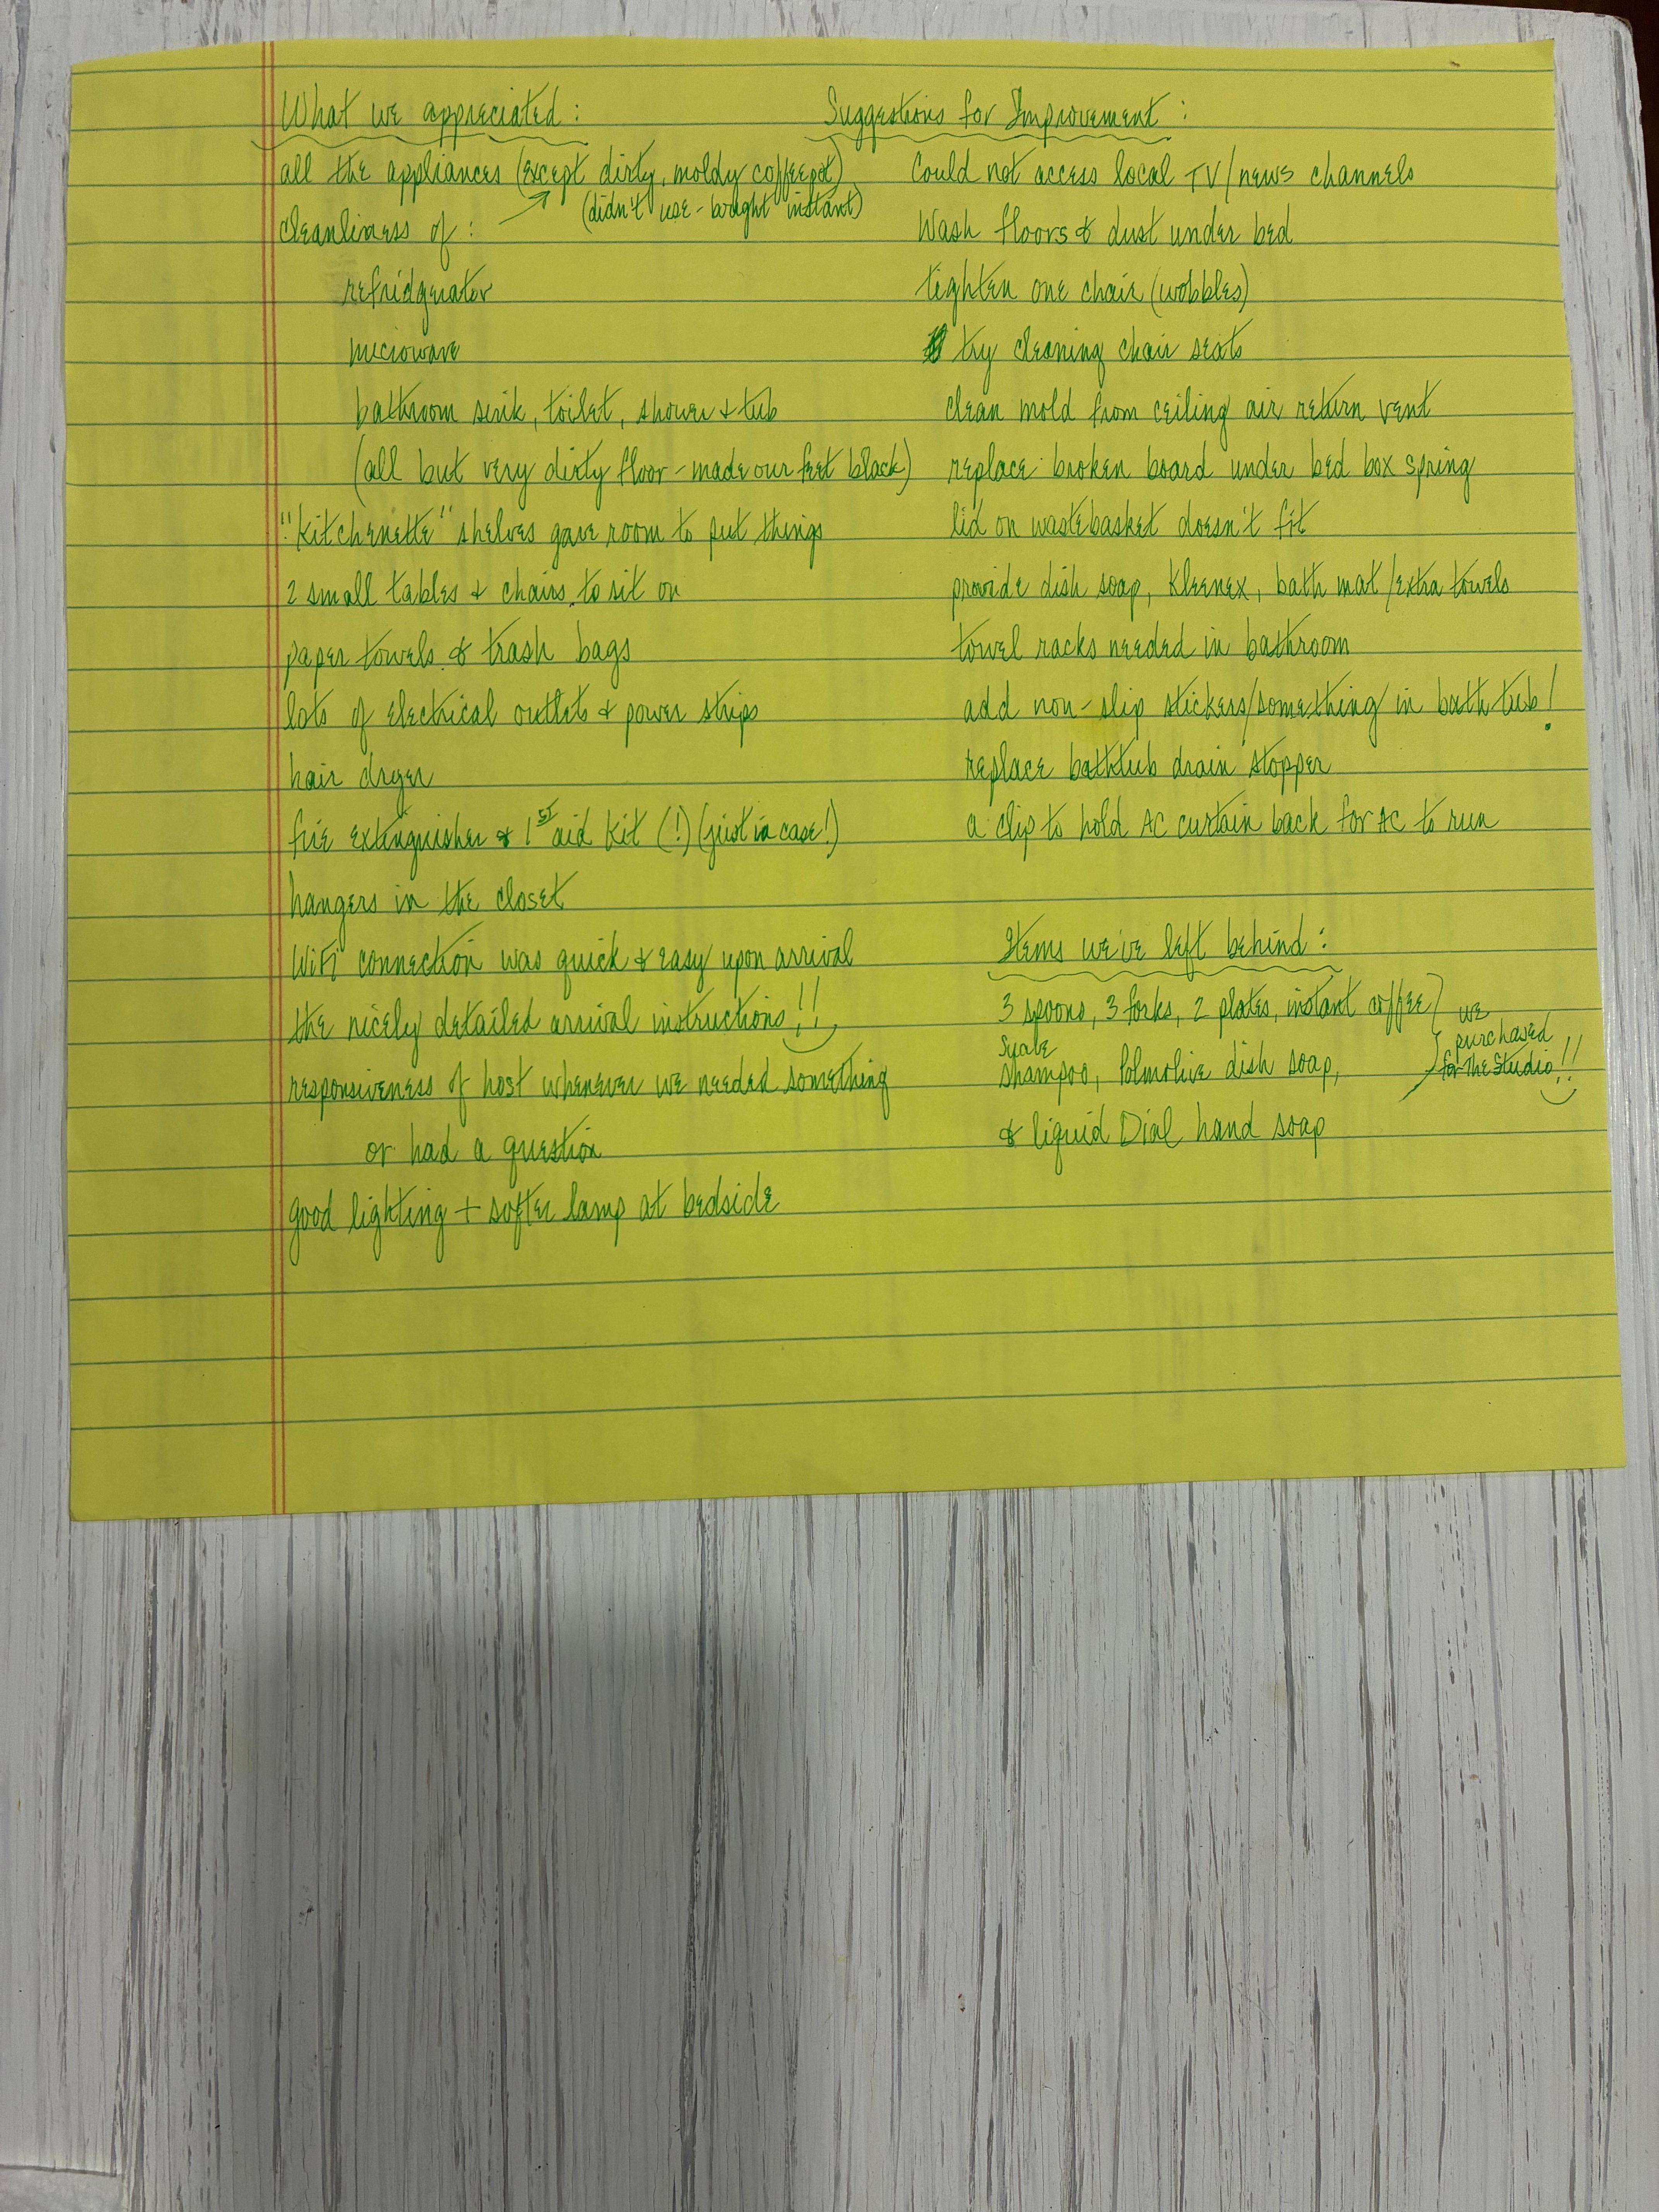 What we appreciated:
all the appliances (except dirty, moldy coffeepot)
(didn't use - bought instant)
cleanliness of:
refridgerator
microwave
bathroom sink, toilet, shower & tub
(all but very dirty floor - made our feet black)
"Kitchenette" shelves gave room to put things
2 small tables & chairs to sit on
paper towels & trash bags
lots of electrical outlets & power strips
hair dryer
fire extinguisher & 1st aid kit (!) (just in case!)
hangers in the closet
WiFi connection was quick & easy upon arrival
the nicely detailed arrival instructions!!
responsiveness of host whenever we needed something
or had a question
good lighting + softer lamp at bedside
Suggestions for Improvement:
Could not access local TV/news channels
Wash floors & dust under bed
tighten one chair (wobbles)
try cleaning chair seats
clean mold from ceiling air return vent
replace broken board under bed box spring
lid on wastebasket doesn't fit
provide dish soap, Kleenex, bath mat/extra towels
towel racks needed in bathroom
add non-slip stickers/something in bath tub!
replace bathtub drain stopper
a clip to hold AC curtain back for AC to run
Items we've left behind:
3 spoons, 3 forks, 2 plates, instant coffee
Suave
shampoo, Palmolive dish soap,
& liquid Dial hand soap
we
purchased
for the Studio!!